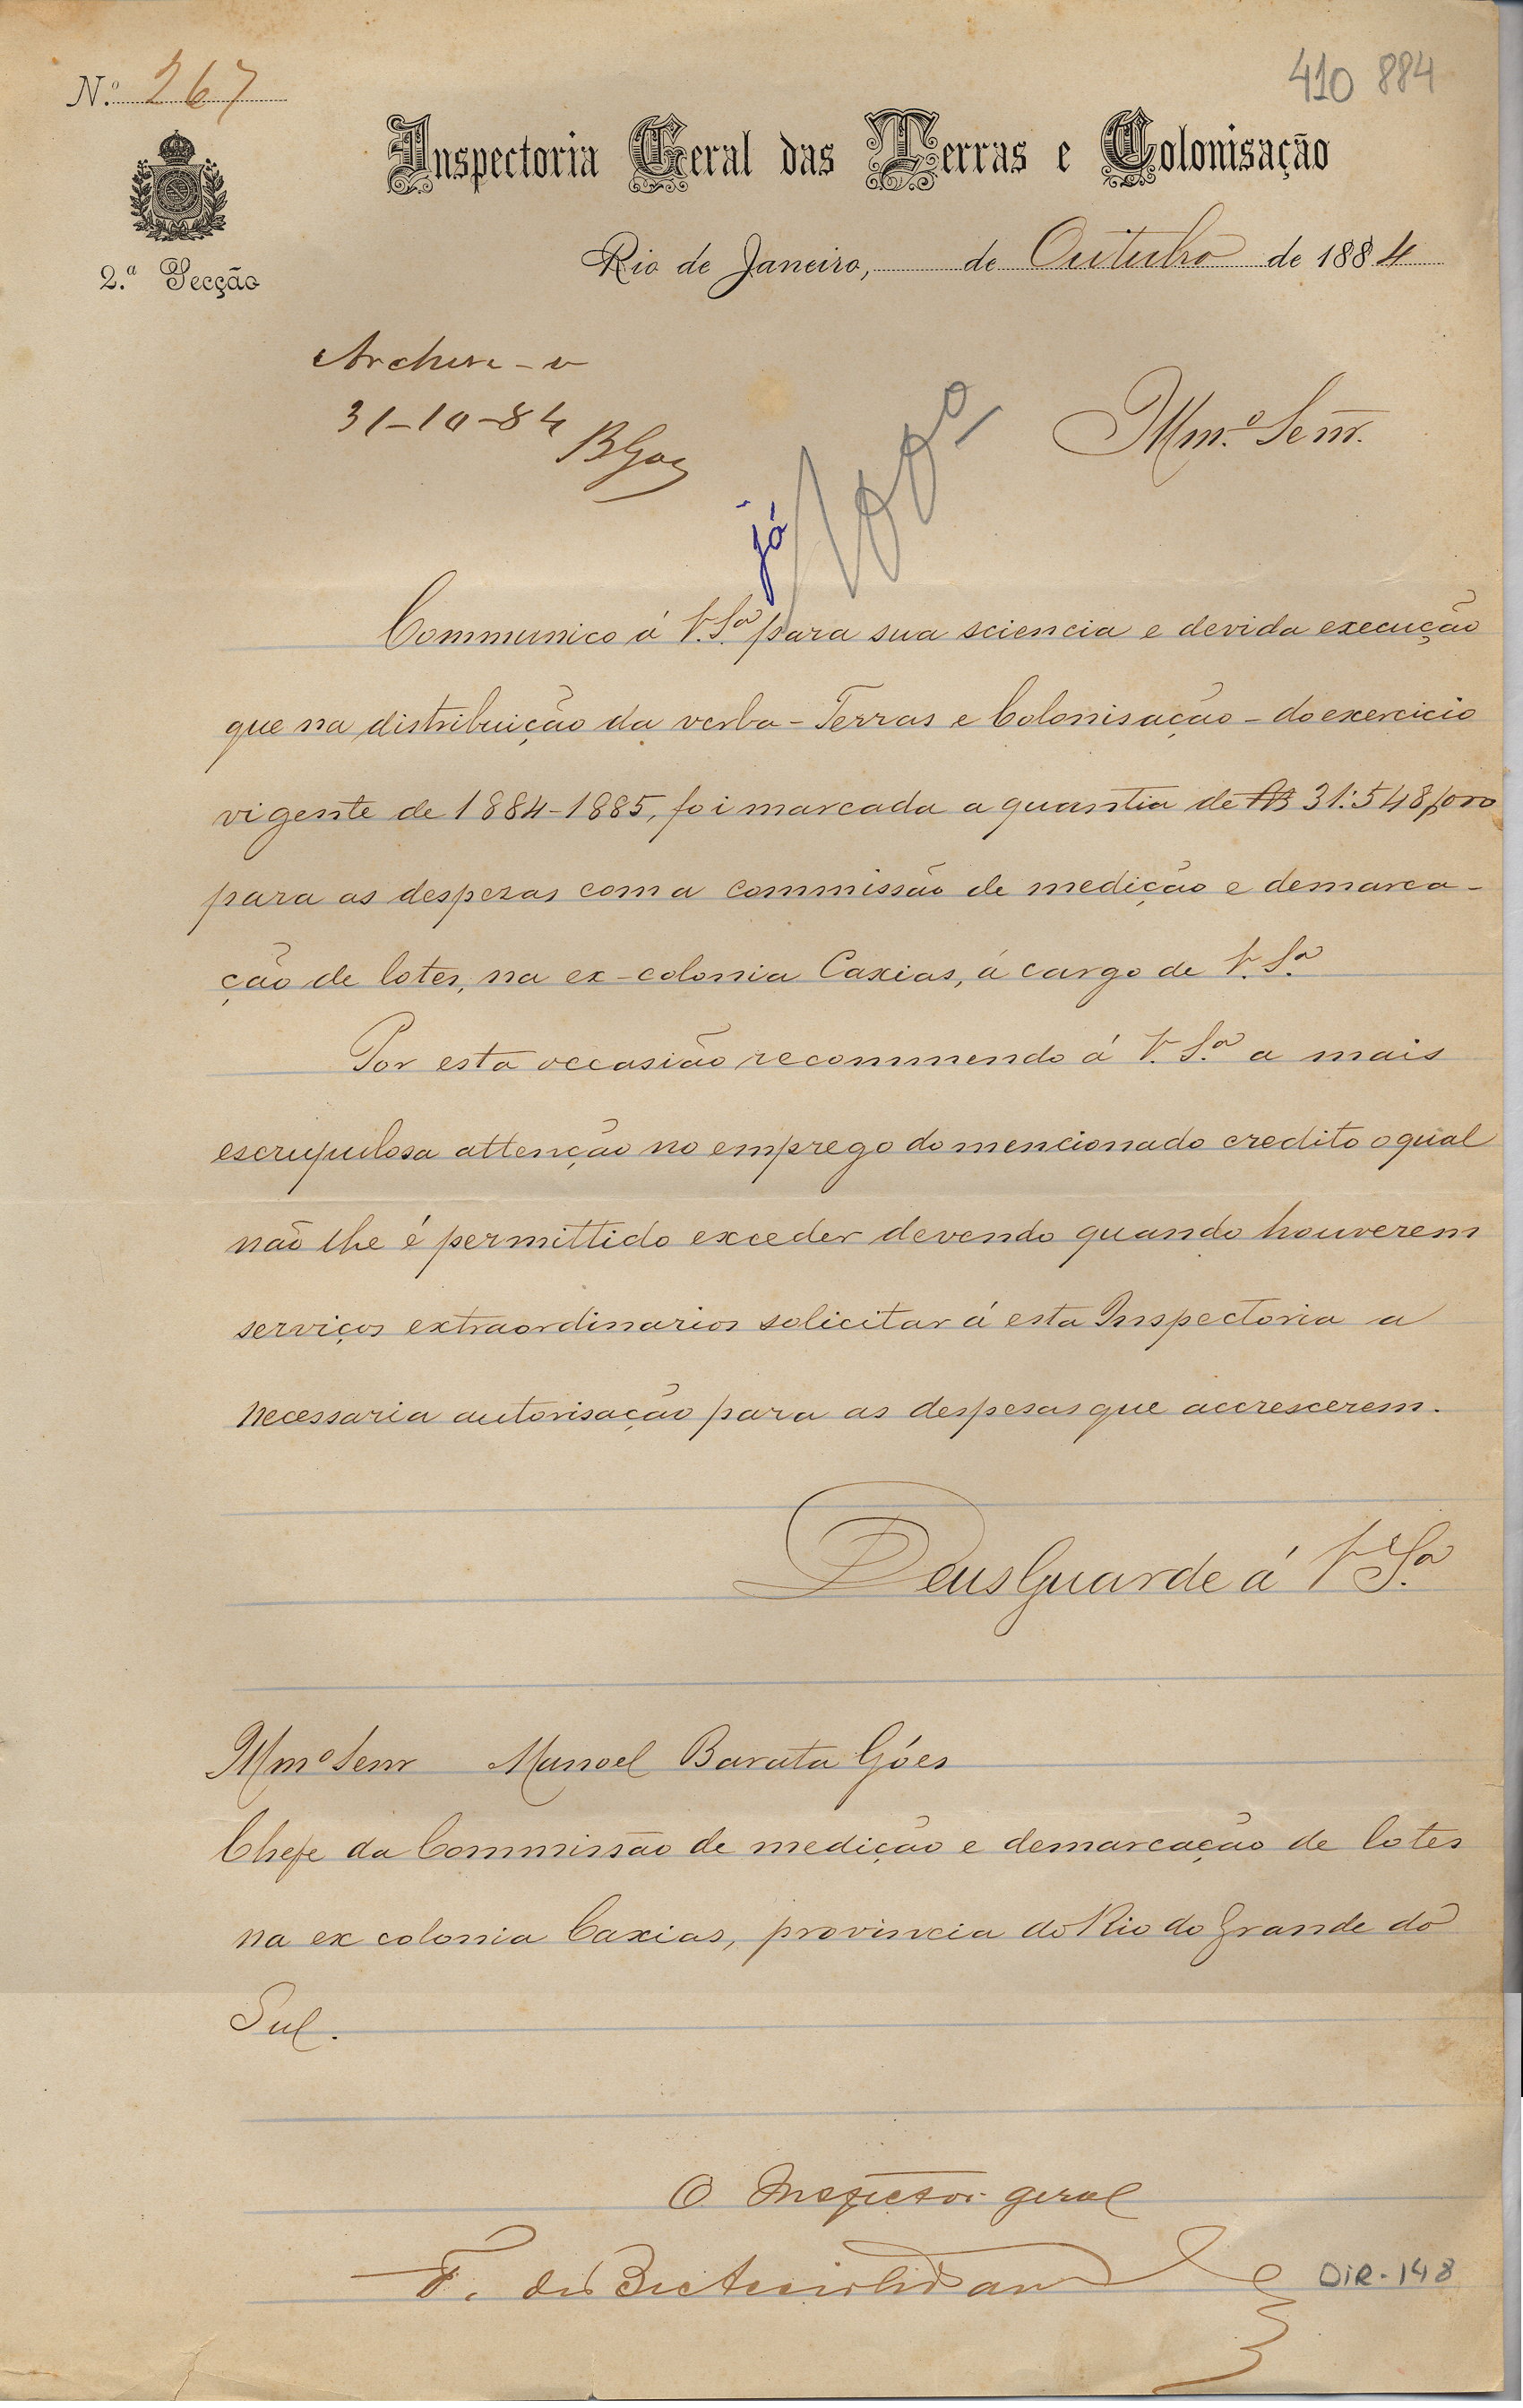 Nº 267
410 884
Inspectoria Geral das Terras e Colonisação
Rio de Janeiro, de Outubro de 1884
2.ª Secção
Archive-se
31-10-84
BGoes
Illm.º Senr.
já
Communico á V.S.ª para sua sciencia e devida execução
que na distribuição da verba - Terras e Colonisação - do exercicio
vigente de 1884-1885, foi marcada a quantia de Rs 31:548$000
para as despezas com a commissão de medição e demarca-
ção de lotes, na ex-colonia Caxias, á cargo de V. S.ª
Por esta occasião recommendo á V. S.ª a mais
escrupulosa attenção no emprego do mencionado credito o qual
não lhe é permittido exceder devendo quando houverem
serviços extraordinarios solicitar á esta Inspectoria a
necessaria autorisação para as despesas que accrescerem.
Deus Guarde á V. S.ª
Illmº Senr Manoel Barata Góes
Chefe da Commissão de medição e demarcação de lotes
na ex colonia Caxias, provincia do Rio do Grande do
Sul.
O Inspector geral
F. de
DIR-148